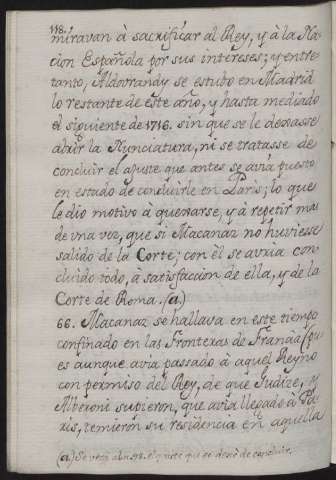 118.
miravan à sacrificar al Rey, y à la Na-
cion Española por sus intereses; y entre
tanto, Aldovrandy se estubo en Madrid
lo restante de este año, y hasta mediado
el siguiente de 1716. sin que se le dexasse
abrir la Nunciatura, ni se tratasse de
concluir el ajuste que antes se avia puesto
en estado de concluirle en Paris; lo que
le dio motivo à quexarse, y à repetir mas
de una vez, que si Macanaz no huviese
salido de la Corte; con el se avria con-
cluido todo, à satisfaccion de ella, y de la
Corte de Roma. (a)
66. Macanaz se hallava en este tiempo
confinado en las Fronteras de Francia (pu
es aunque avia passado à aquel Reyno
con permiso del Rey, de que Judize, y
Alberoni supieron, que avia llegado à Pa-
ris, temieron su residencia en aquella
(a) Se verà al n. el ajuste que se dexò de concluir.